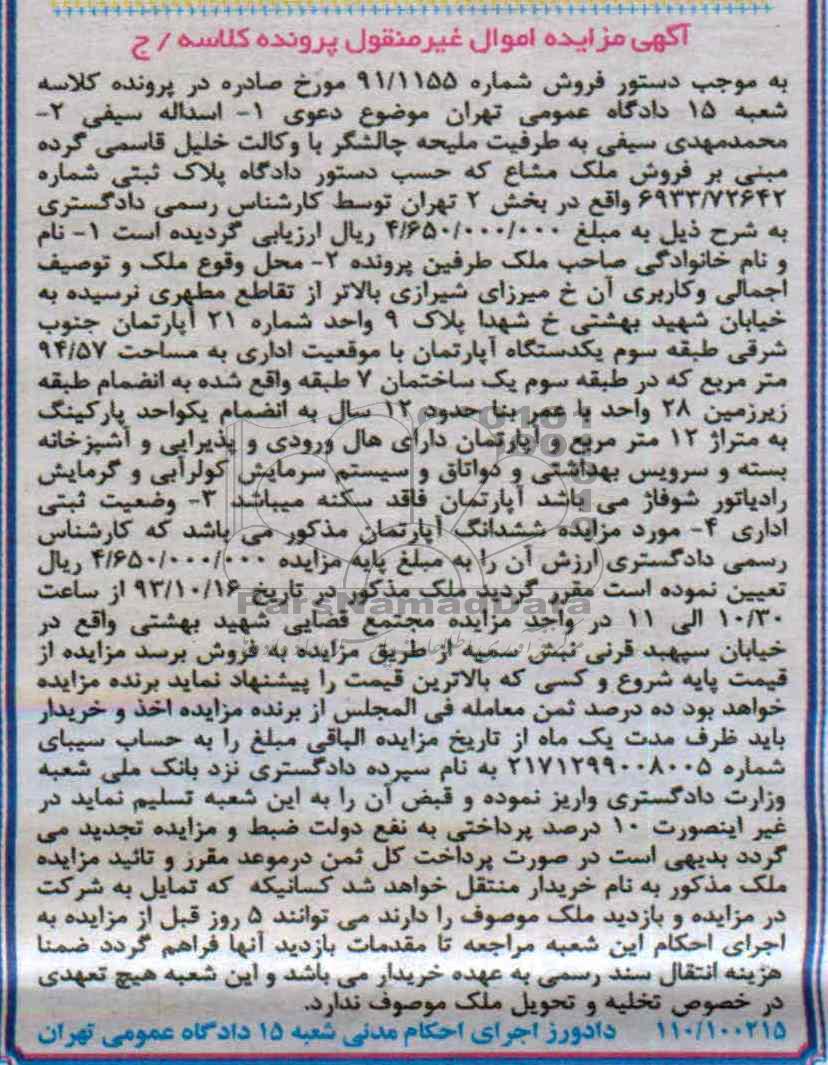 آگهی مزایده اموال غیرمنقول پرونده کلاسه / ج
به موجب دستور فروش شماره ۹۱/۱۱۵۵ مورخ صادره در پرونده کلاسه
شعبه ۱۵ دادگاه عمومی تهران موضوع دعوی ۱- اسداله سیفی ۲-
محمدمهدی سیفی به طرفیت ملیحه چالشگر با وکالت خلیل قاسمی گرده
مبنی بر فروش ملک مشاع که حسب دستور دادگاه پلاک ثبتی شماره
۶۹۳۳/۷۲۶۴۲ واقع در بخش ۲ تهران توسط کارشناس رسمی دادگستری
به شرح ذیل به مبلغ ۴/۶۵۰/۰۰۰/۰۰۰ ریال ارزیابی گردیده است ۱- نام
و نام خانوادگی صاحب ملک طرفین پرونده ۲- محل وقوع ملک و توصیف
اجمالی وکاربری آن خ میرزای شیرازی بالاتر از تقاطع مطهری نرسیده به
خیابان شهید بهشتی خ شهدا پلاک ۹ واحد شماره ۲۱ آپارتمان جنوب
شرقی طبقه سوم یکدستگاه آپارتمان با موقعیت اداری به مساحت ۹۴/۵۷
متر مربع که در طبقه سوم یک ساختمان ۷ طبقه واقع شده به انضمام طبقه
زیرزمین ۲۸ واحد با عمر بنا حدود ۱۲ سال به انضمام یکواحد پارکینگ
به متراژ ۱۲ متر مربع و آپارتمان دارای هال ورودی و پذیرایی و آشپزخانه
بسته و سرویس بهداشتی و دواتاق و سیستم سرمایش کولرآبی و گرمایش
رادیاتور شوفاژ می باشد آپارتمان فاقد سکنه میباشد ۳- وضعیت ثبتی
اداری ۴- مورد مزایده ششدانگ آپارتمان مذکور می باشد که کارشناس
رسمی دادگستری ارزش آن را به مبلغ پایه مزایده ۴/۶۵۰/۰۰۰/۰۰۰ ریال
تعیین نموده است مقرر گردید ملک مذکور در تاریخ ۹۳/۱۰/۱۶ از ساعت
۱۰/۳۰ الی ۱۱ در واحد مزایده مجتمع قضایی شهید بهشتی واقع در
خیابان سپهبد قرنی نبش سمیه از طریق مزایده به فروش برسد مزایده از
قیمت پایه شروع و کسی که بالاترین قیمت را پیشنهاد نماید برنده مزایده
خواهد بود ده درصد ثمن معامله فی المجلس از برنده مزایده اخذ و خریدار
باید ظرف مدت یک ماه از تاریخ مزایده الباقی مبلغ را به حساب سیبای
شماره ۲۱۷۱۲۹۹۰۰۸۰۰۵ به نام سپرده دادگستری نزد بانک ملی شعبه
وزارت دادگستری واریز نموده و قبض آن را به این شعبه تسلیم نماید در
غیر اینصورت ۱۰ درصد پرداختی به نفع دولت ضبط و مزایده تجدید می
گردد بدیهی است در صورت پرداخت کل ثمن درموعد مقرر و تائید مزایده
ملک مذکور به نام خریدار منتقل خواهد شد کسانیکه که تمایل به شرکت
در مزایده و بازدید ملک موصوف را دارند می توانند ۵ روز قبل از مزایده به
اجرای احکام این شعبه مراجعه تا مقدمات بازدید آنها فراهم گردد ضمنا
هزینه انتقال سند رسمی به عهده خریدار می باشد و این شعبه هیچ تعهدی
در خصوص تخلیه و تحویل ملک موصوف ندارد.
۱۱۰/۱۰۰۲۱۵ دادورز اجرای احکام مدنی شعبه ۱۵ دادگاه عمومی تهران
ParsNamadData